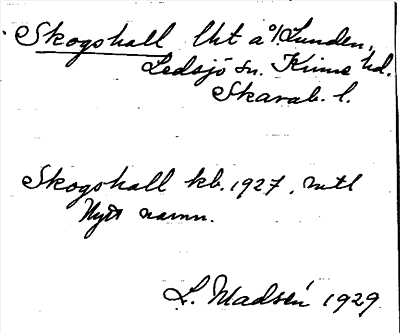 Skogshall lht a % Lunden,
Ledsjö sn. Kinne hd.
Skarab. l.
Skogshall kb. 1927, mtl
Nytt namn.
L. Madsén 1929